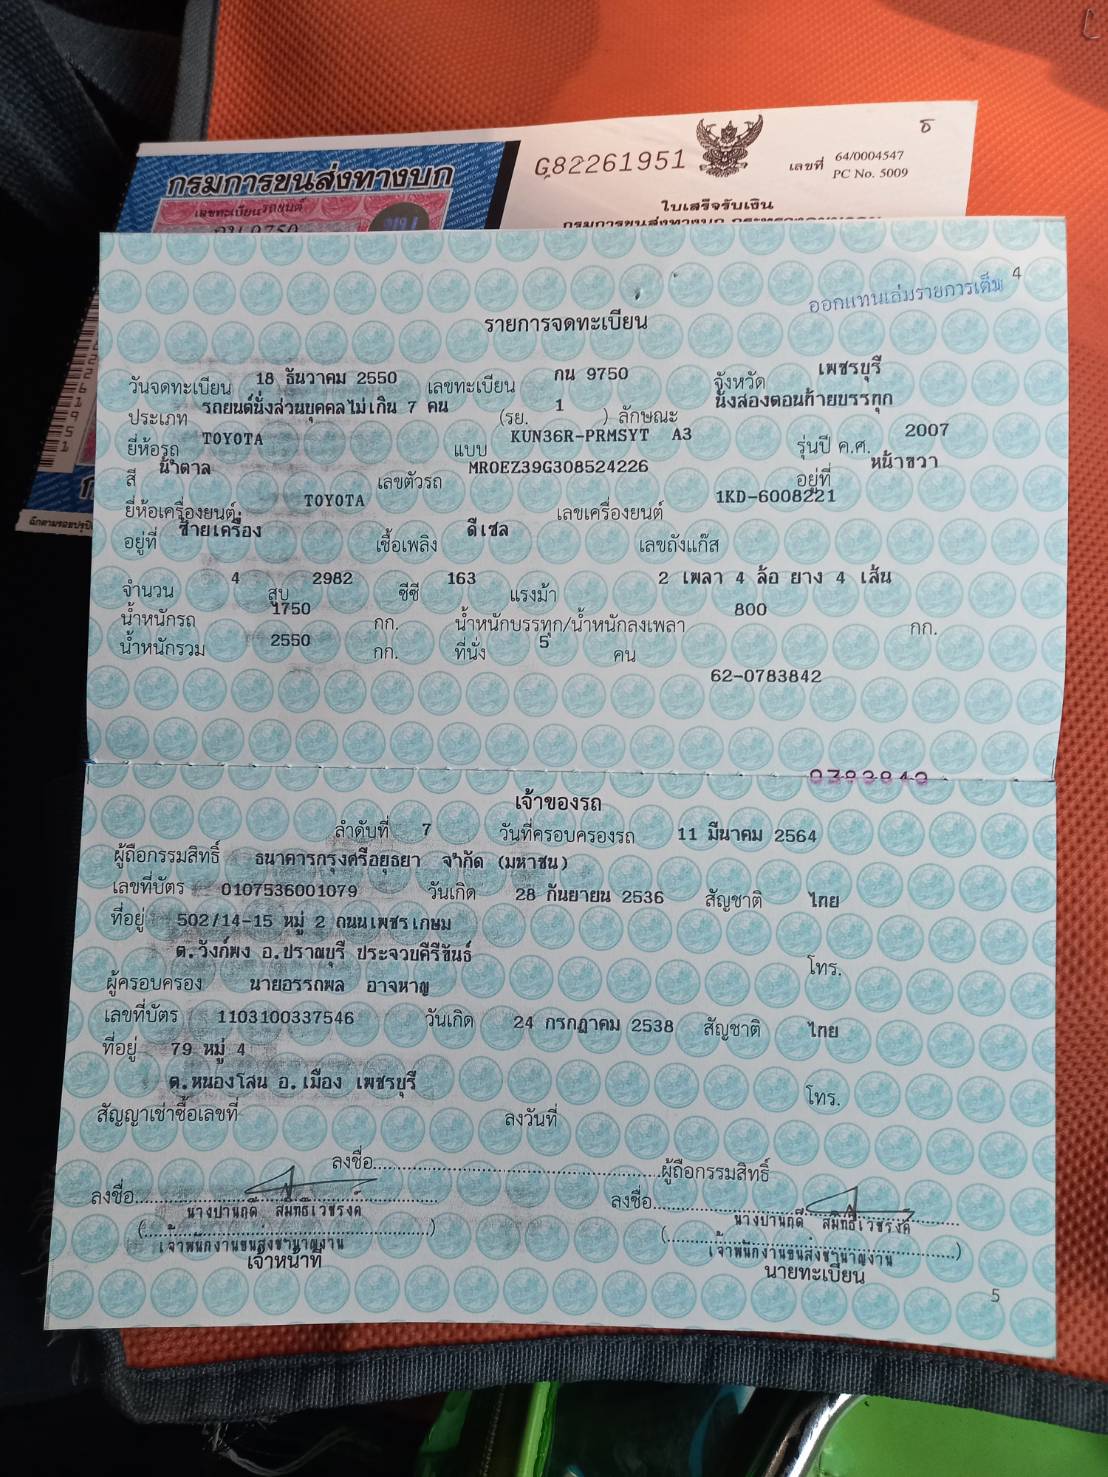 กรมการขนส่งทางบก
เลขทะเบียนรถยนต์
กน 9750
G82261951
เลขที่ 64/0004547
PC No. 5009
ใบเสร็จรับเงิน
กรมการขนส่งทางบก
ออกแทนเล่มรายการเต็ม
4
รายการจดทะเบียน
วันจดทะเบียน 18 ธันวาคม 2550 เลขทะเบียน กน 9750 จังหวัด เพชรบุรี
ประเภท รถยนต์นั่งส่วนบุคคลไม่เกิน 7 คน (รย. 1 ) ลักษณะ นั่งสองตอนท้ายบรรทุก
ยี่ห้อรถ TOYOTA แบบ KUN36R-PRMSYT A3 รุ่นปี ค.ศ. 2007
สี น้ำตาล เลขตัวรถ MR0EZ39G308524226 อยู่ที่ หน้าขวา
ยี่ห้อเครื่องยนต์ TOYOTA เลขเครื่องยนต์ 1KD-6008221
อยู่ที่ ซ้ายเครื่อง เชื้อเพลิง ดีเซล เลขถังแก๊ส
จำนวน 4 สูบ 2982 ซีซี 163 แรงม้า 2 เพลา 4 ล้อ ยาง 4 เส้น
น้ำหนักรถ 1750 กก. น้ำหนักบรรทุก/น้ำหนักลงเพลา 800 กก.
น้ำหนักรวม 2550 กก. ที่นั่ง 5 คน
62-0783842
เจ้าของรถ
ลำดับที่ 7 วันที่ครอบครองรถ 11 มีนาคม 2564
ผู้ถือกรรมสิทธิ์ ธนาคารกรุงศรีอยุธยา จำกัด (มหาชน)
เลขที่บัตร 0107536001079 วันเกิด 28 กันยายน 2536 สัญชาติ ไทย
ที่อยู่ 502/14-15 หมู่ 2 ถนนเพชรเกษม
ต.วังก์พง อ.ปราณบุรี ประจวบคีรีขันธ์ โทร.
ผู้ครอบครอง นายอรรถพล อาจหาญ
เลขที่บัตร 1103100337546 วันเกิด 24 กรกฎาคม 2538 สัญชาติ ไทย
ที่อยู่ 79 หมู่ 4
ต.หนองโสน อ.เมือง เพชรบุรี โทร.
สัญญาเช่าซื้อเลขที่ ลงวันที่
ลงชื่อ ผู้ถือกรรมสิทธิ์
ลงชื่อ ลงชื่อ
นางปานฤดี สมิทธิเวชรงค์ นางปานฤดี สมิทธิเวชรงค์
เจ้าพนักงานขนส่งชำนาญงาน เจ้าพนักงานขนส่งชำนาญงาน
เจ้าหน้าที่ นายทะเบียน
5